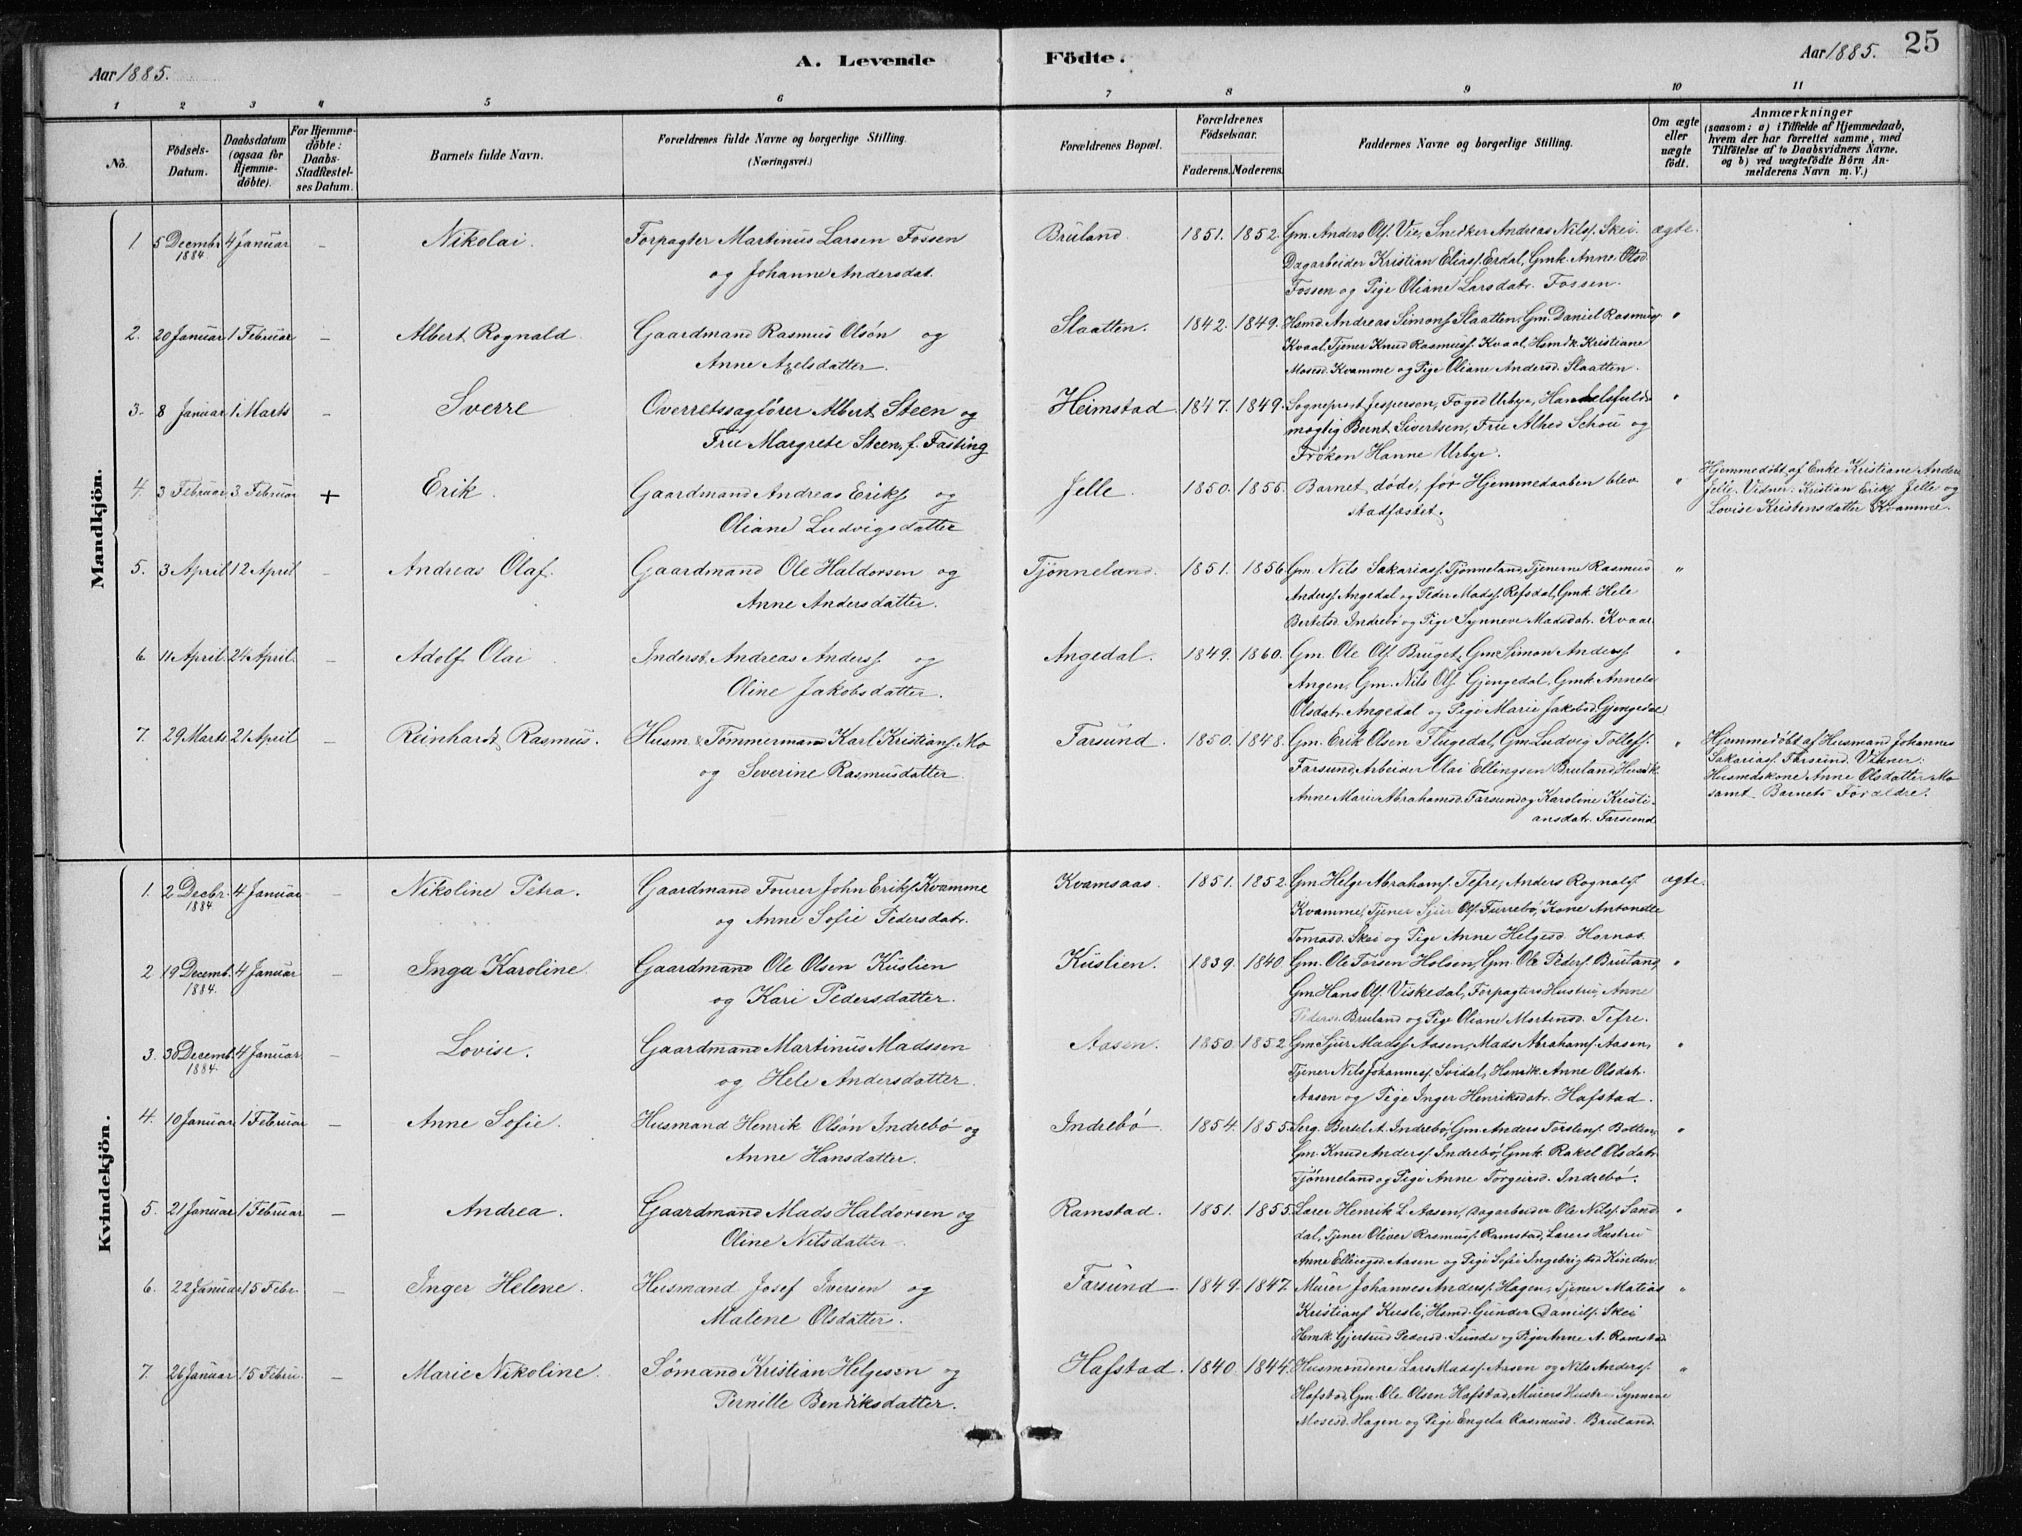 Aar 1885.
A. Levende Födte.
Aar 1885.
25
1 2 3 4 5 6 7 8 9 10 11
No.
Födsels-Datum.
Daabsdatum (ogsaa for Hjemmedöbte).
For Hjemmedöbte: Daabs-Stadfæstelses Datum.
Barnets fulde Navn.
Forældrenes fulde Navne og borgerlige Stilling.
(Næringsvei.)
Forældrenes Bopæl.
Forældrenes Födselsaar.
Faderens. Moderens.
Faddernes Navne og borgerlige Stilling.
Om ægte eller uægte födt.
Anmærkninger
(saasom: a) i Tilfælde af Hjemmedaab, hvem der har forrettet samme, med Tilföielse af to Daabsvidners Navne, og b) ved uægtefödte Börn Anmelderens Navn m. V.)
Mandkjön.
1 5 Decembr 1884 4 Januar – Nikolai. Forpagter Martinus Larsen Fossen
og Johanne Andersdat.
Bruland. 1851. 1852. Gm. Anders Ols. Vie, Snedker Andreas Nils. Skei. ægte.
Dagarbeider Kristian Elias. Erdal, Gmk. Anne Olsd.
Fossen og Pige Oliane Larsdatr. Fossen.
2. 20 Januar 1 Februar – Albert Rognald. Gaardmand Rasmus Olsön og
Anne Axelsdatter.
Slaatten. 1842. 1849. Hsmd. Andreas Simons. Slaatten, Gm. Daniel Rasmus. "
Kvaal, Tjener Knud Rasmuss. Kvaal, Hsmdk. Kristiane
Mosesd. Kvamme og Pige Oliane Andersd. Slaatten.
3. 8 Januar 1 Marts – Sverre Overretssagförer Albert Steen og
Frue Margrete Steen, f. Fasting
Heimstad. 1847. 1849. Sogneprest Jespersen, Foged Urbye, Handelsfuld- "
mægtig Bernt Sivertsen, Fru Alhed Schou og
Fröken Hanne Urbye.
4. 3 Februar 3. Februar + Erik. Gaardmand Andreas Eriks. og
Oliane Ludvigsdatter
Jelle. 1850. 1856. Barnet döde, för Hjemmedaaben blev "
stadfæstet.
Hjemmedöbt af Enke Kristiane Anders
Jelle. Vidner: Kristian Eriks. Jelle og
Lovise Kristensdatter Kvamme.
5. 3 April 12 April – Andreas Olaf. Gaardmand Ole Haldorsen og
Anne Andersdatter.
Tjönneland. 1851. 1856. Gm. Nils Sakarias. Tjönneland, Tjenerne Rasmus "
Anders. Angedal og Peder Mads. Refsdal, Gmk. Hele
Bertelsd. Indrebö og Pige Synneve Madsdatr. Kvaal.
6. 11 April. 24 April. – Adolf Olai Inderst. Andreas Anders. og
Oline Jakobsdatter.
Angedal. 1849. 1860. Gm. Ole Ols. Bruget, Gm. Simon Anders. "
Angen, Gm. Nils Ols. Gjengedal, Gmk. Annela
Olsdatr. Angedal og Pige Marie Jakobsd. Gjengedal
7. 29 Marts 21 April – Reinhardt Rasmus. Husm. & Tömmermand Karl Kristians. Mo
og Severine Rasmusdatter.
Farsund. 1850. 1848. Gm. Erik Olsen Flugedal, Gm. Ludvig Tollefs. "
Farsund, Arbeider Olai Ellingsen Bruland, Husmdk.
Anne Marie Abrahamsd. Farsund og Karoline Kristi-
ansdatr. Farsund
Hjemmedöbt af Husmand Johannes
Sakarias. Farsund. Vidner:
Husmdskone Anne Olsdatter Mo
samt Barnets Forældre.
Kvindekjön.
1. 2 Decbr. 1884 4 Januar – Nikoline Petra. Gaardmand Fourer John Eriks. Kvamme
og Anne Sofie Pedersdatr.
Kvamsaas. 1851. 1852. Gm. Helge Abrahams. Tefre, Anders Rognals. ægte.
Kvamme, Tjener Sjur Ols. Furrebö, Kone Antonette
Tomasd. Skei og Pige Anne Helgesd. Hornas.
2 19 Decemb. 1884. 4 Januar – Inga Karoline. Gaardmand Ole Olsen Kuslien
og Kari Pedersdatter.
Kuslien. 1839. 1840 Gm. Ole Torsen Holsen, Gm. Ole Peders. Bruland, "
Gm. Hans Ols. Viskedal, Forpagters Hustru Anne
Pedersd. Bruland og Pige Oliane Martinsd. Tefre.
3. 30 Decemb. 1884. 4 Januar. – Lovise. Gaardmand Martinus Madssen
og Hele Andersdatter.
Aasen. 1850. 1852. Gm. Sjur Mads. Aasen, Mads Abrahams. Aasen, "
Tjener Nils Johannes. Svidal, Hsmdk. Anne Olsdatr.
Aasen og Pige Inger Henriksdatr. Hafstad.
4. 10 Januar 1 Februar – Anne Sofie. Husmand Henrik Olsön Indrebö og
Anne Hansdatter.
Indrebö 1854. 1855. Serg. Bertel A. Indrebö, Gm. Anders Torstens. Botten, "
Gm. Knud Anders. Indrebö, Gmk. Rakel Olsdatr.
Tjönneland og Pige Anne Torgersd. Indrebö.
5. 21 Januar 1 Februar – Andrea. Gaardmand Mads Haldorsen og
Oline Nilsdatter.
Ramstad. 1851. 1855. Lærer Henrik L. Aasen, Dagarbeider Ole Nils. Sand- "
dal, Tjener Oliver Rasmus. Ramstad, Lærers Hustru
Anne Ellingsd. Aasen og Pige Sofie Ingebrigtsd. Kinden.
6. 22 Januar 15 Febr. – Inger Helene. Husmand Josef Iversen og
Malene Olsdatter.
Farsund 1849. 1847. Murer Johannes Anders. Hagen, Tjener Matias "
Kristians. Kusli, Hsmd. Gunder Daniels. Skei
Hsmk. Gjertrud Pedersd. Sunde og Pige Anne A. Ramstad
7. 26 Januar 15 Febru. – Marie Nikoline. Sömand Kristian Helgesen og
Pernille Bendiksdatter.
Hafstad. 1840. 1844. Husmændene Lars Mads. Aasen og Nils Anders. "
Hafstad, Gm. Ole Olsen Hafstad, Murers Hustru Synneve
Mosesd. Hagen og Pige Engela Rasmusd. Bruland.